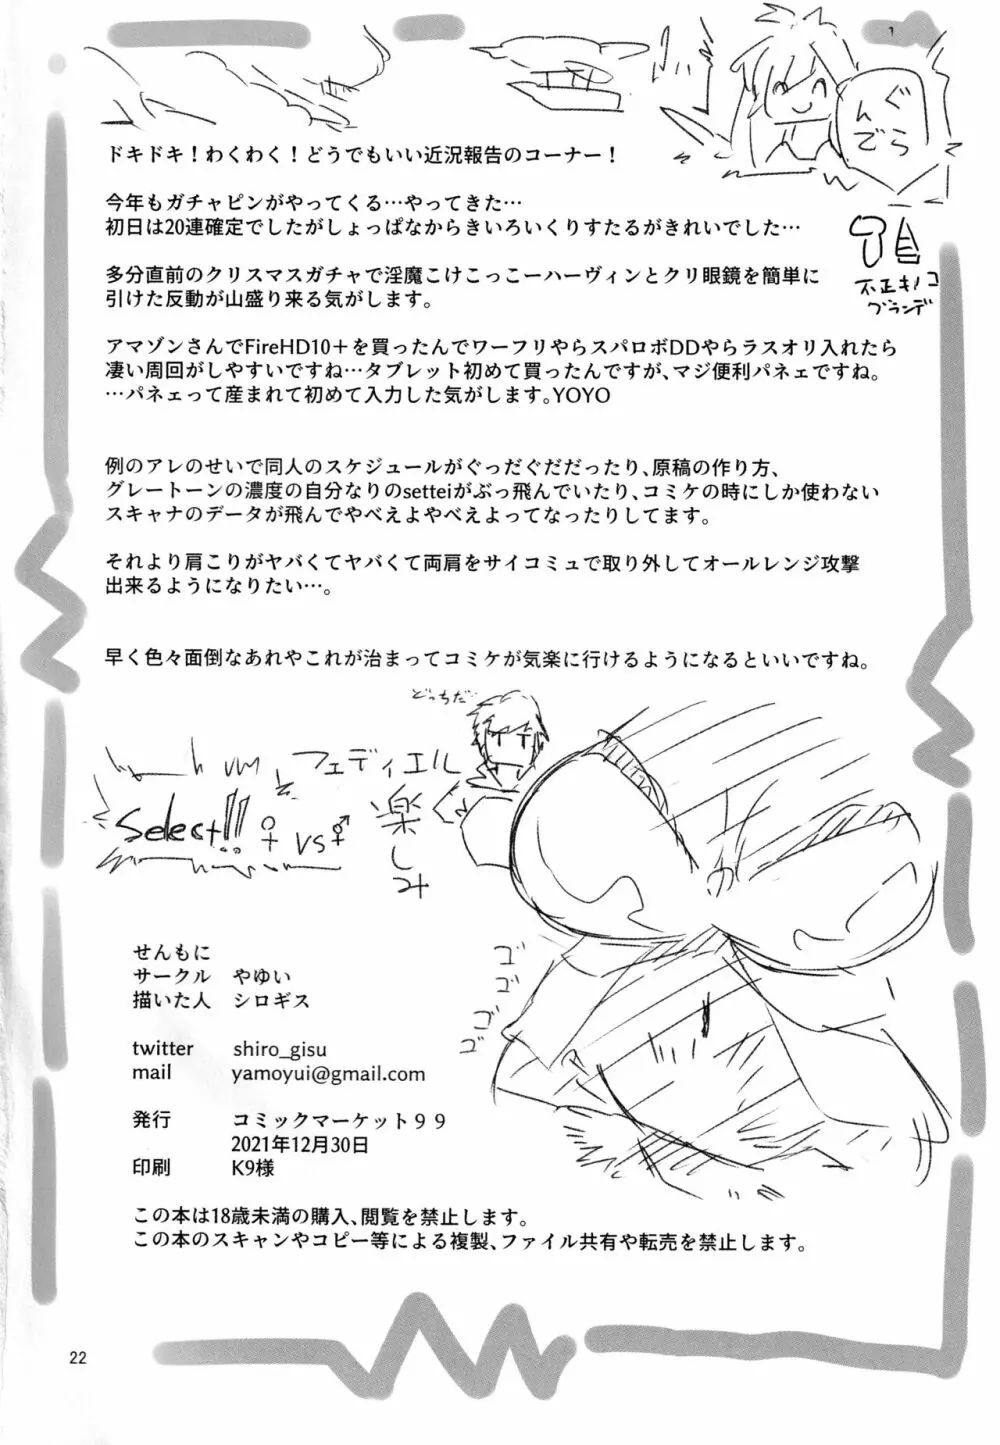 ぐらんで
不正キノコ
ブランデ
ドキドキ！わくわく！どうでもいい近況報告のコーナー！
今年もガチャピンがやってくる…やってきた…
初日は20連確定でしたがしょっぱなからきいろいくりすたるがきれいでした…
多分直前のクリスマスガチャで淫魔こけこっこーハーヴィンとクリ眼鏡を簡単に
引けた反動が山盛り来る気がします。
アマゾンさんでFireHD10＋を買ったんでワーフリやらスパロボDDやらラスオリ入れたら
凄い周回がしやすいですね…タブレット初めて買ったんですが、マジ便利パネェですね。
…パネェって産まれて初めて入力した気がします。YOYO
例のアレのせいで同人のスケジュールがぐっだぐだだったり、原稿の作り方、
グレートーンの濃度の自分なりのsetteiがぶっ飛んでいたり、コミケの時にしか使わない
スキャナのデータが飛んでやべえよやべえよってなったりしてます。
それより肩こりがヤバくてヤバくて両肩をサイコミュで取り外してオールレンジ攻撃
出来るようになりたい…。
早く色々面倒なあれやこれが治まってコミケが気楽に行けるようになるといいですね。
どっちだ…
フェディエル
楽しみ
Select!!
♀vs⚥
の
ゴゴゴゴ
せんもに
サークル やゆい
描いた人 シロギス
twitter shiro_gisu
mail yamoyui@gmail.com
発行 コミックマーケット９９
2021年12月30日
印刷 K9様
この本は18歳未満の購入、閲覧を禁止します。
この本のスキャンやコピー等による複製、ファイル共有や転売を禁止します。
22